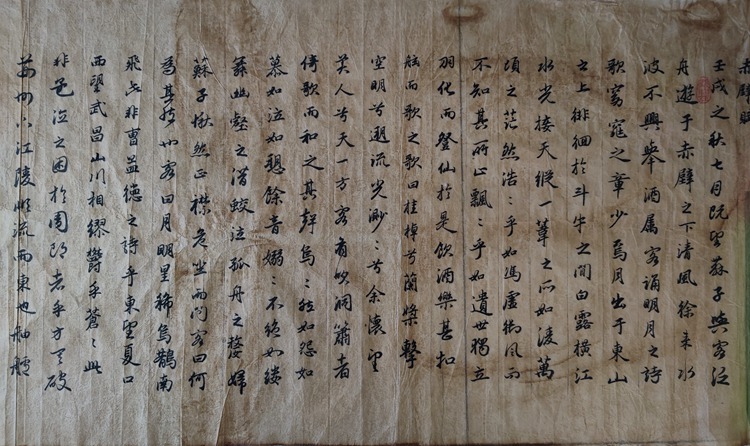 赤壁賦
壬戌之秋七月既望蘇子與客泛
舟遊于赤壁之下清風徐来水
波不興舉酒属客誦明月之詩
歌窈窕之章少焉月出于東山
之上徘徊於斗牛之間白露橫江
水光接天縱一葦之所如凌萬
頃之茫然浩〻乎如馮虛御风而
不知其所止飄〻乎如遺世獨立
羽化而登仙於是飲酒樂甚扣
舷而歌之歌曰桂棹兮蘭槳擊
空明兮遡流光渺〻兮余懷望
美人兮天一方客有吹洞簫者
倚歌而和之其聲烏〻然如怨如
慕如泣如愬餘音嫋〻不絕如縷
舞幽壑之潛蛟泣孤舟之嫠婦
蘇子愀然正襟危坐而问客曰何
為其然也客曰月明星稀烏鵲南
飛此非曹孟德之詩乎東望夏口
西望武昌山川相繆鬱乎蒼〻此
非孟德之困於周郎者乎方其破
荊州下江陵順流而東也舳艫